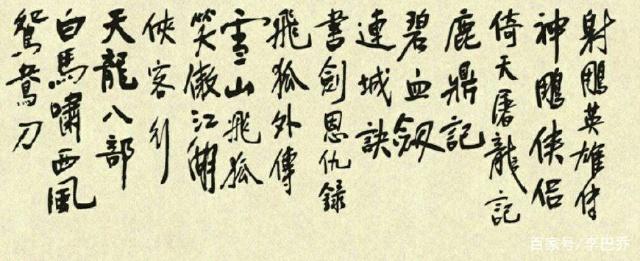 射鵰英雄传
神鵰侠侣
倚天屠龍記
鹿鼎記
碧血劍
連城訣
書劍恩仇録
飛狐外傳
雪山飛狐
笑傲江湖
俠客行
天龍八部
白馬嘯西風
鴛鴦刀
百家号/李巴乔